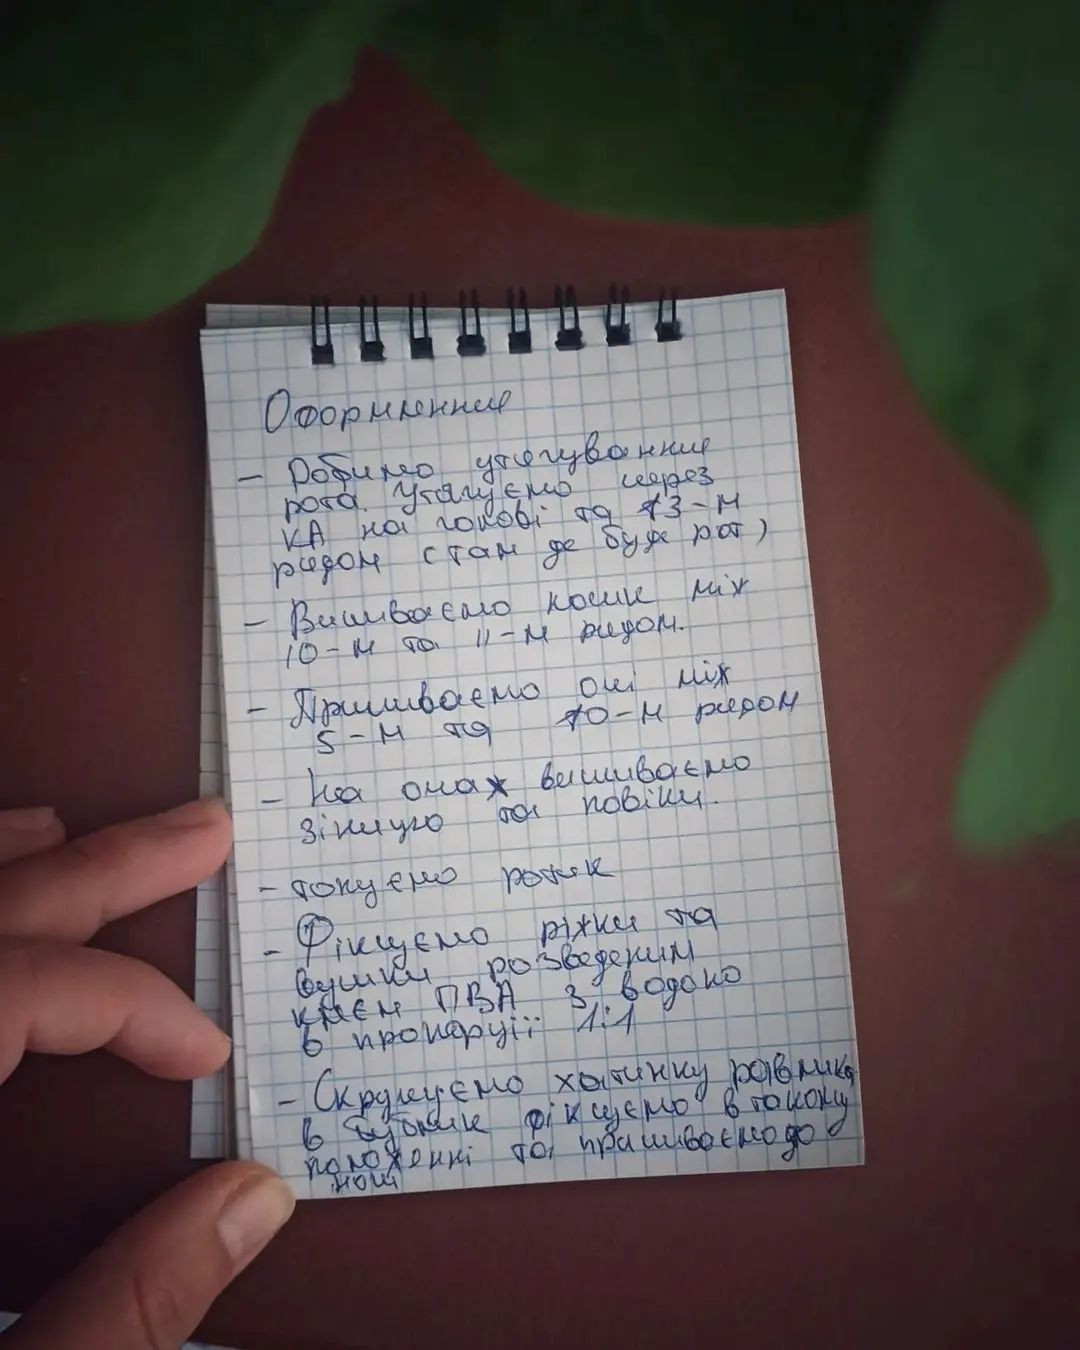 Оформлення
- Робимо утягування
рота. Утягуємо через
КА на голові та 13-м
рядом (там де буде рот)
- Вишиваємо носик між
10-м та 11-м рядом.
- Пришиваємо очі між
5-м та 10-м рядом
- На очах вишиваємо
зіницю та повіки.
- тонуємо ротик
- Фіксуємо ріжки та
вушки розведеним
клєєм ПВА з водою
в пропорції 1:1
- Скручуємо хатинку равлика
в бублик фіксуємо в такому
положенні та пришиваємо до